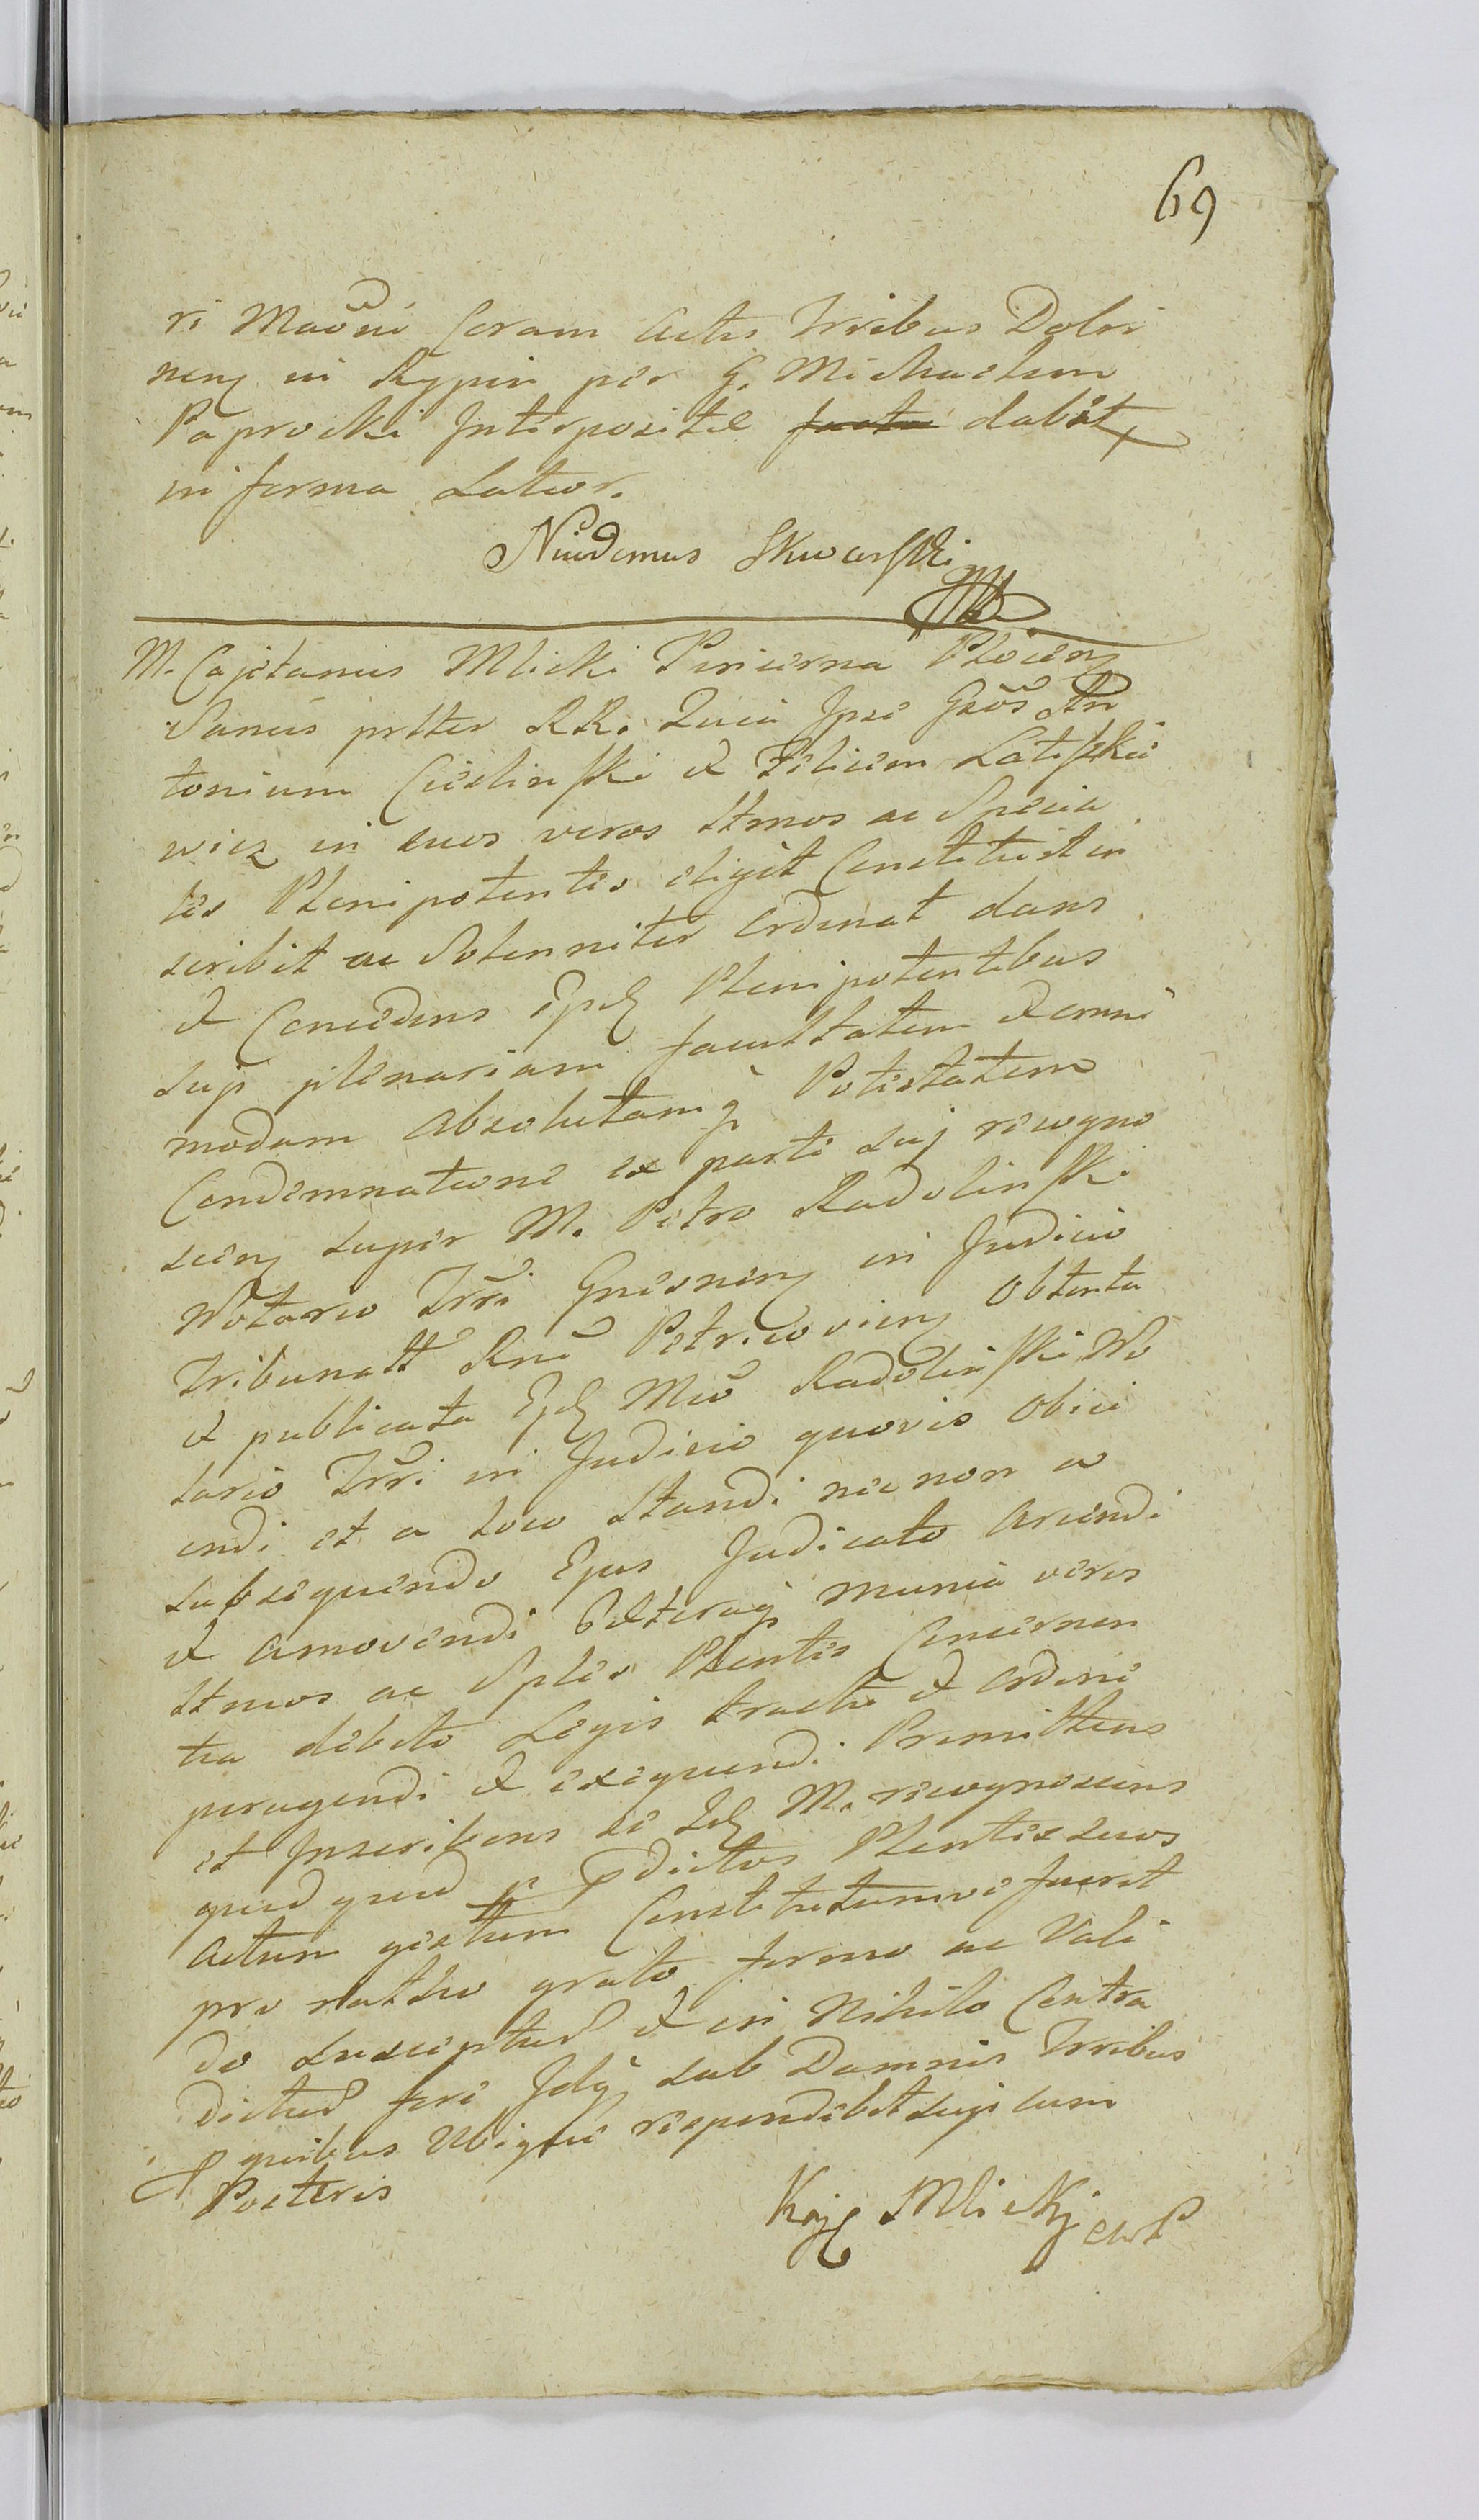 69
ri Maõni Coram Actis Trribus Dobri
nen in Rypin per G. Michaelem
Paprocki Interpositae facta dabit
in forma Latior.
Nicodemus Skwarski
M. Cajetanus Mlicki Pincerna Plocen
Sanus pttter RR. Quia Ipse Gsos An
tonium Cieslinski et Felicem Latoszkie
wicz in suos veros lttmos ac Specia
les Plenipotentes eligit Constituit in
scribit ac Solenniter ordinat dans
et Concedens Ijsd Plenipotentibus
suis plenariam facultatem et omni
modam absolutamq Potestatem
Condemnatione ex parte suj recogno
scen super M. Petro Radolinski
Notario Trri Gnesnen in Judicio
Tribunall Rni Petricovien obtenta
et publicata Ejd Mco Radolinski No
tario Trri in Judicio quovis Obici
endi et a loco standi nec non a
subsequendo Ejus Judicato Arcendi
et amovendi Caeteraq munia veros
lttmos ac Sples Plentes Concernen
tia debito Legis tractu et ordine
peragendi et exequendi Promittens
et Inscribens se Id M. recognoscens
quid quid p pdictos Plentes suos
Actum gestum Constitutumve fuerit
pro ratho grato firmo ac Vali
do suscepturu et in Nihilo Contra
dicturu fore Idq sub Damnis Trribus
p quibus Ubique respondebit suis cum
Posteris
Kaje Mlickj CWP